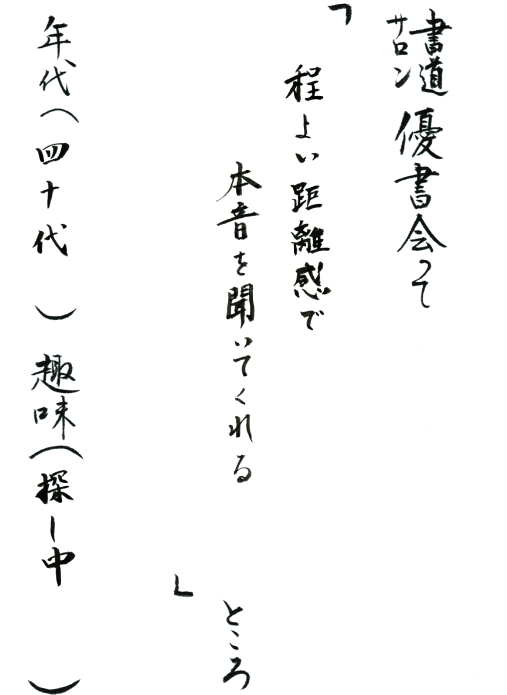 書道サロン 優書会って
「程よい距離感で
本音を聞いてくれる
」ところ
年代（四十代　）趣味（探し中　）